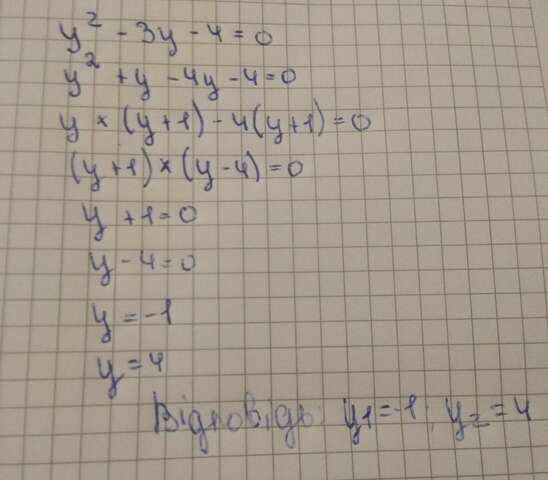 y² - 3y - 4 = 0
y² + y - 4y - 4 = 0
y × (y + 1) - 4(y + 1) = 0
(y + 1) × (y - 4) = 0
y + 1 = 0
y - 4 = 0
y = -1
y = 4
Відповідь: y₁ = -1; y₂ = 4